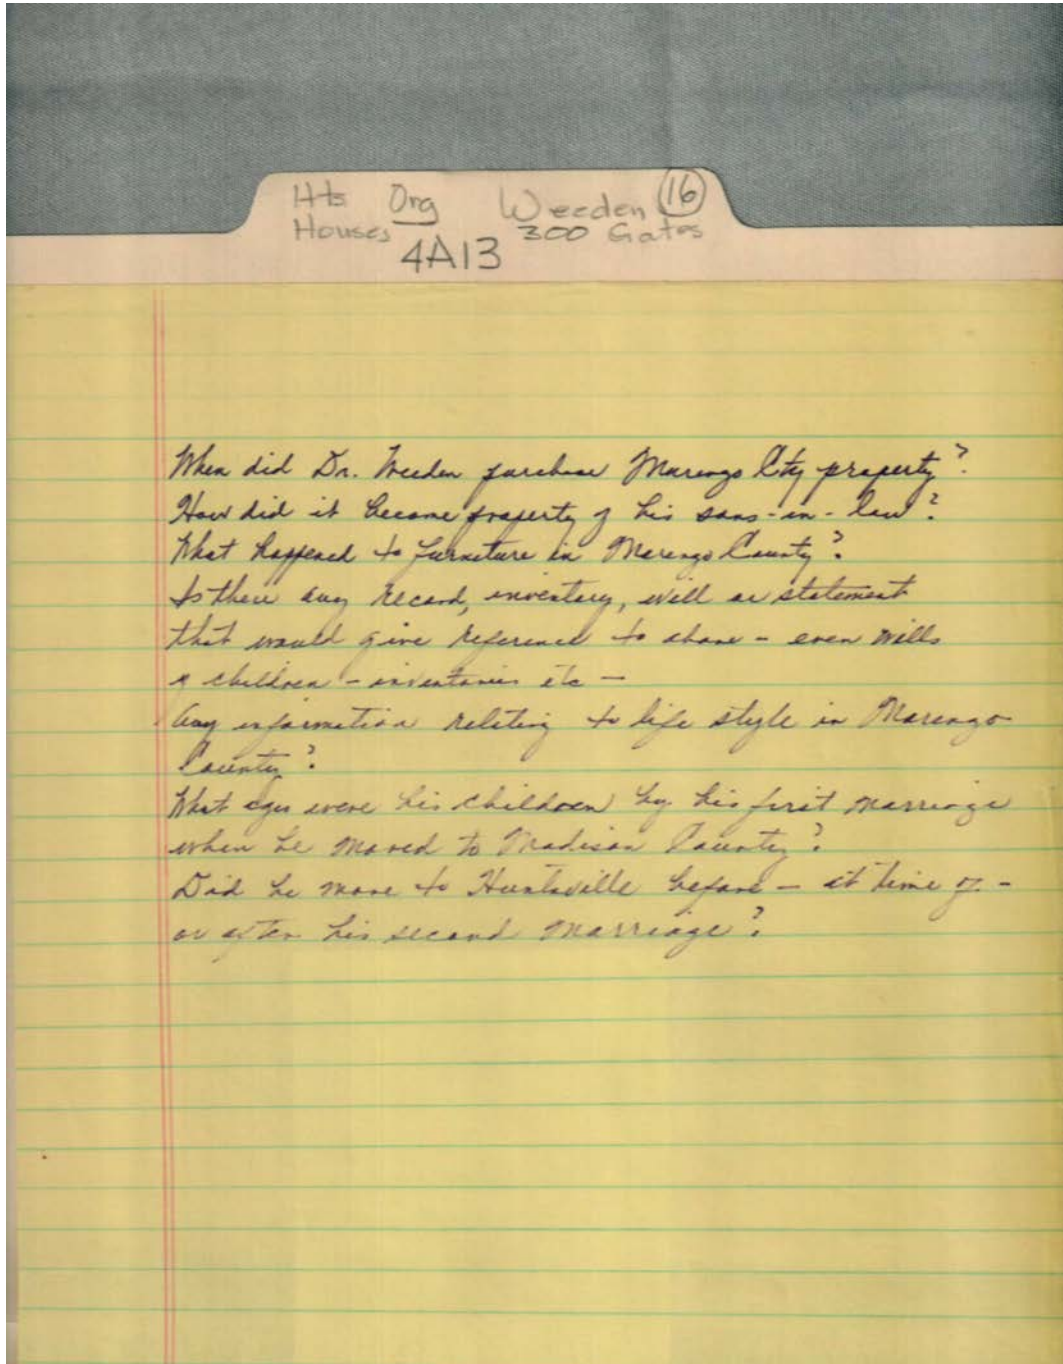 Hts Org Weeden 16
Houses 300 Gates
4A13
When did Dr. Weeden purchase Marengo Cty property?
How did it become property of his sons-in-law?
What happened to furniture in Marengo County?
Is there any record, inventory, will or statement
that would give reference to above - even wills
of children - inventories etc -
Any information relating to life style in Marengo
County?
What ages were his children by his first marriage
when he moved to Madison County?
Did he move to Huntsville before - at time of -
or after his second marriage?